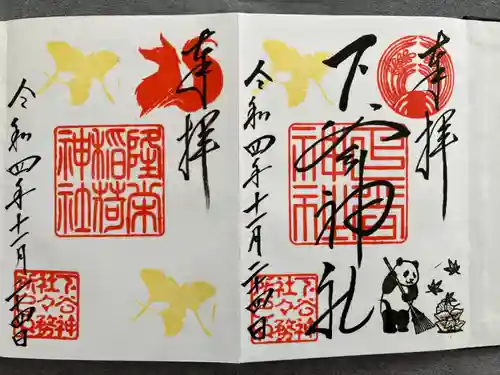 奉拝
下谷神社
下谷
神社
令和四年十一月二十四日
下谷神
社々務
奉拝
隆栄
稲荷
神社
令和四年十一月二十四日
下谷神
社々務